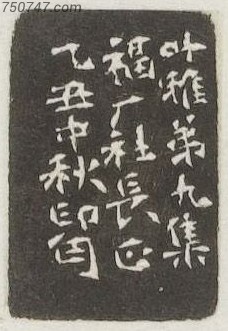 750747.com
叶雅第九集
福厂社長正
乙丑中秋印匄